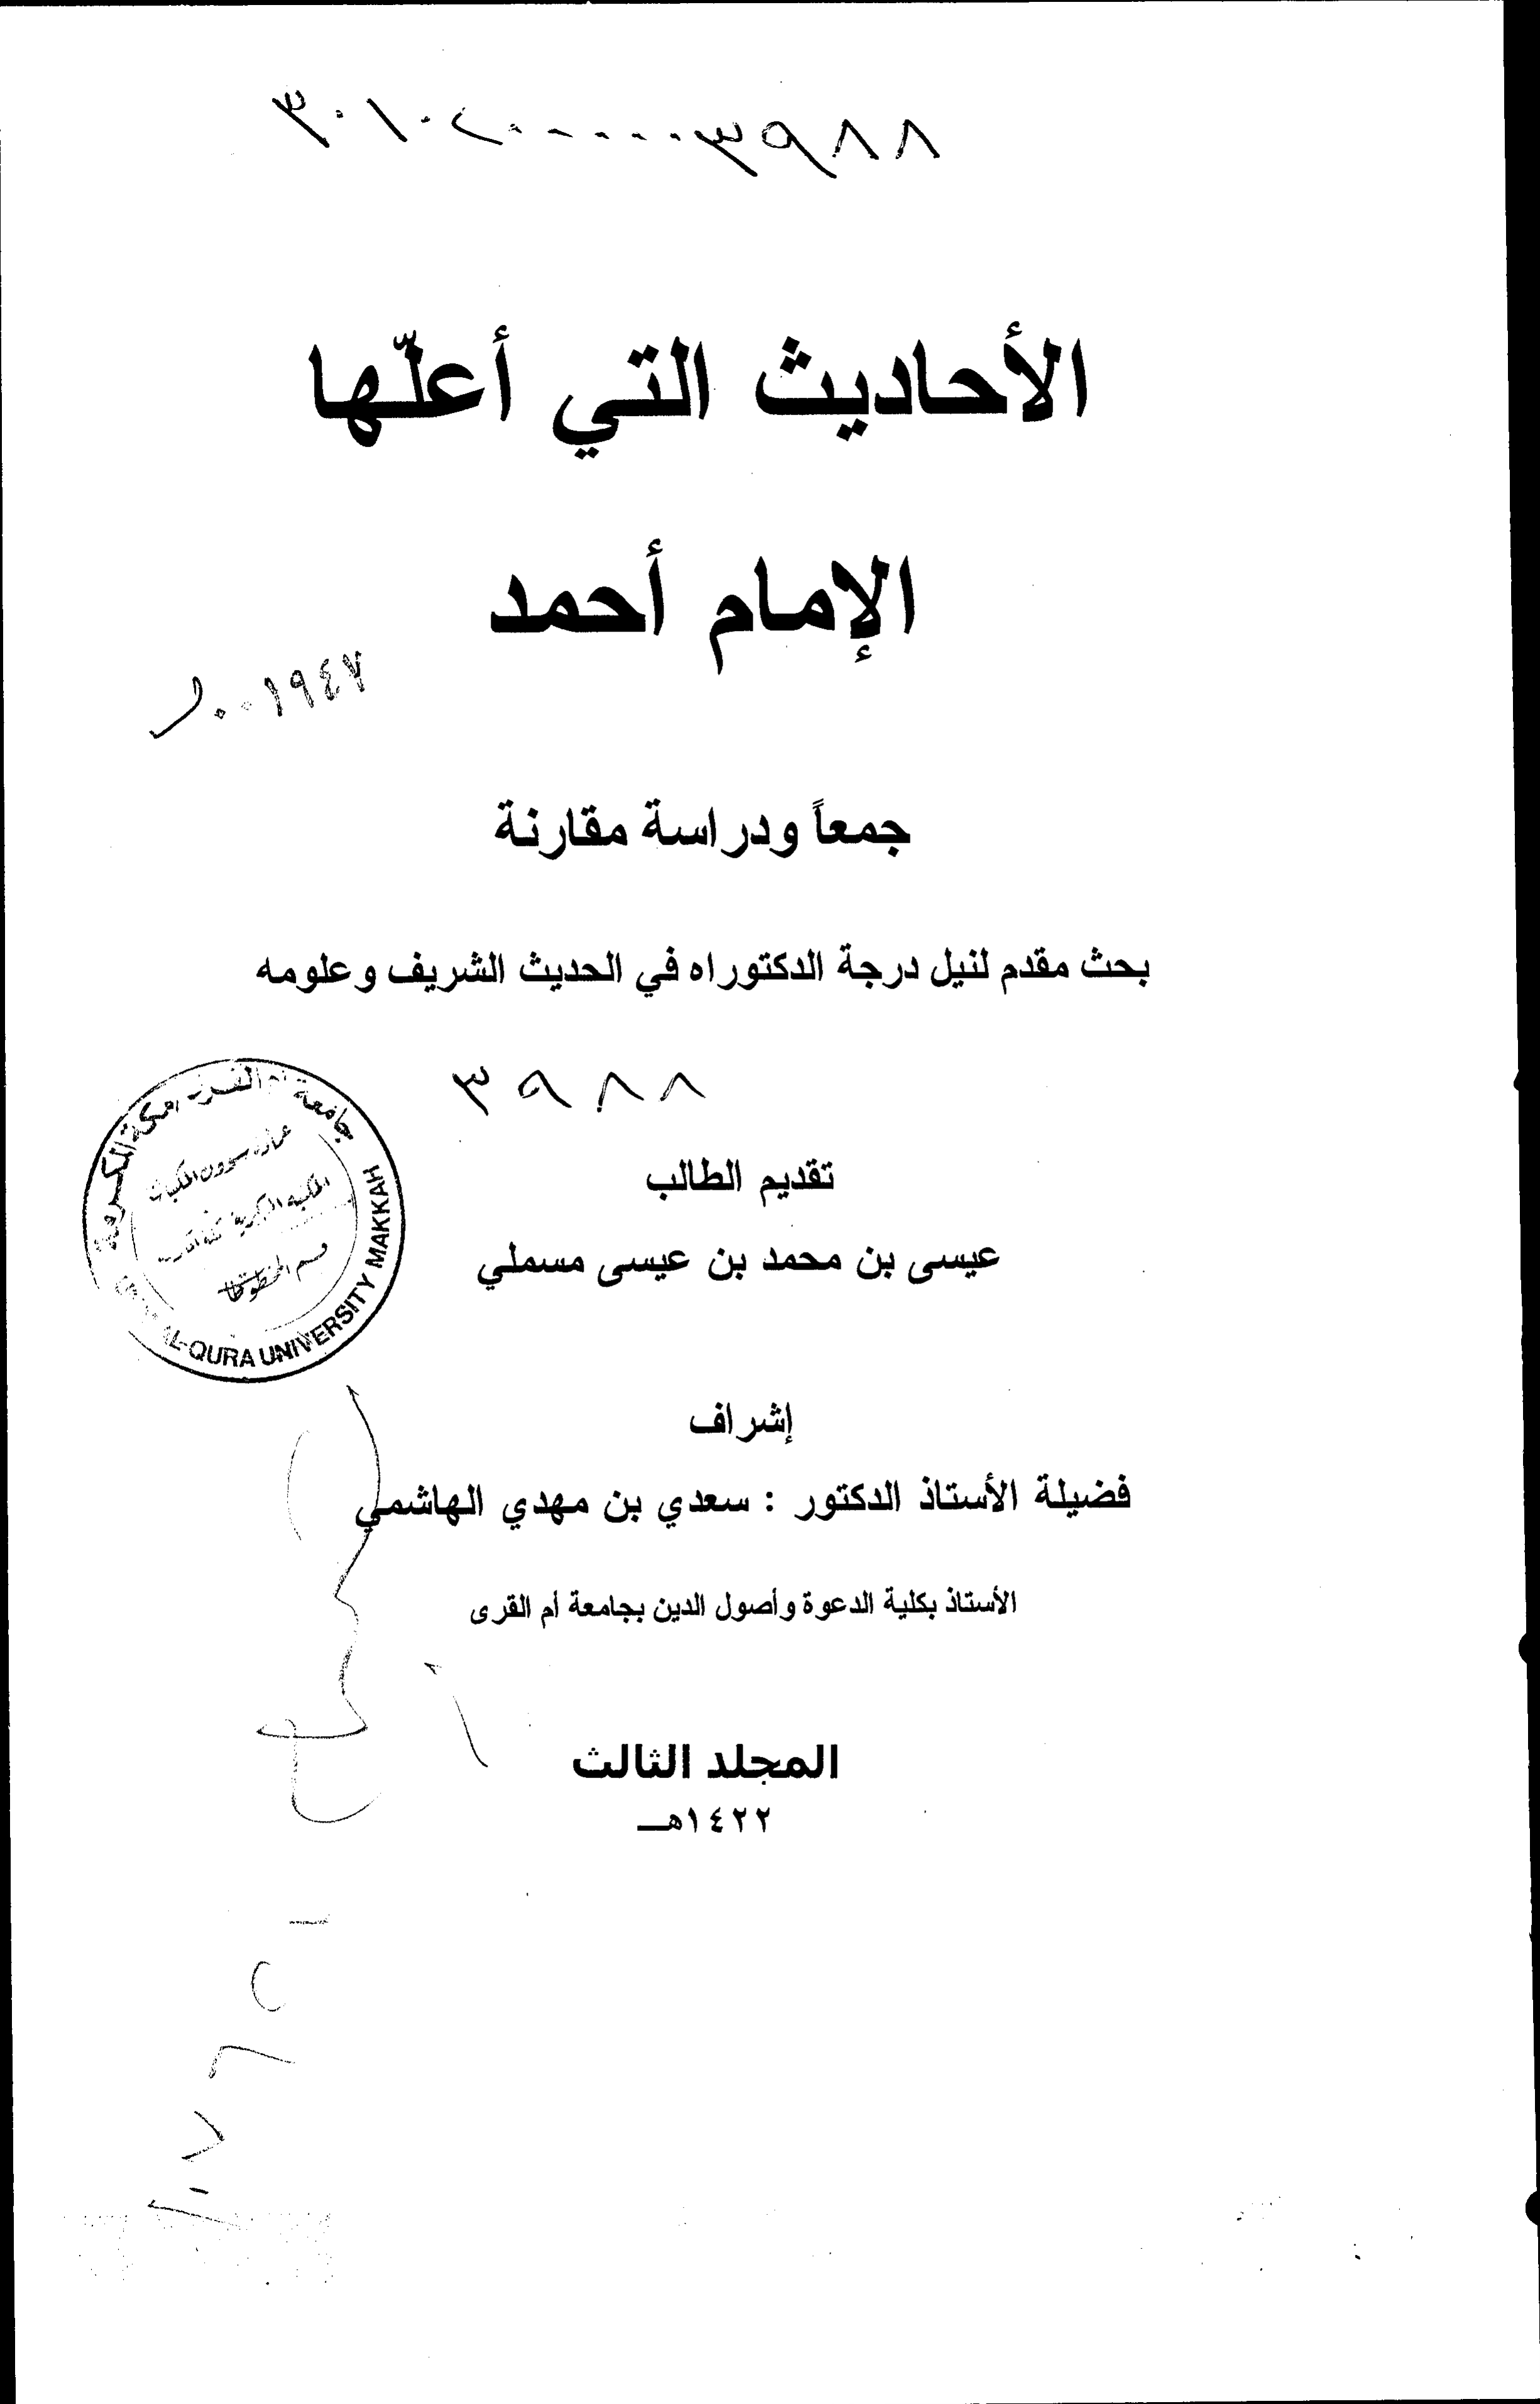 ٣٠١٠٢٠٠٠٠٠٣٩٨٨
الأحاديث التي أعلّها
الإمام أحمد
٠٠١٩٤٧
جمعاً ودراسة مقارنة
بحث مقدم لنيل درجة الدكتوراه في الحديث الشريف وعلومه
٣٩٨٨
جامعة أم القرى مكة المكرمة
قسم المخطوطات
AL-QURA UNIVERSITY MAKKAH
تقديم الطالب
عيسى بن محمد بن عيسى مسملي
إشراف
فضيلة الأستاذ الدكتور : سعدي بن مهدي الهاشمي
الأستاذ بكلية الدعوة وأصول الدين بجامعة أم القرى
المجلد الثالث
١٤٢٢هـ